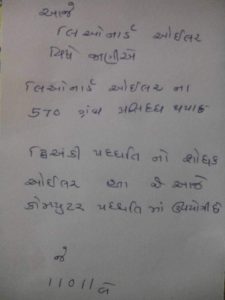 આજે
લિઓનાર્ડ ઓઈલર
વિષે જાણીએ
લિઓનાર્ડ ઓઈલર ના
570 ગ્રંથ પ્રસિદ્ધ થયા
દ્વિઅંકી પદ્ધતિ નો શોધક
ઓઈલર આ જે આજે
કોમ્પ્યુટર પદ્ધતિ માં ઉપયોગી છે
જે
11011